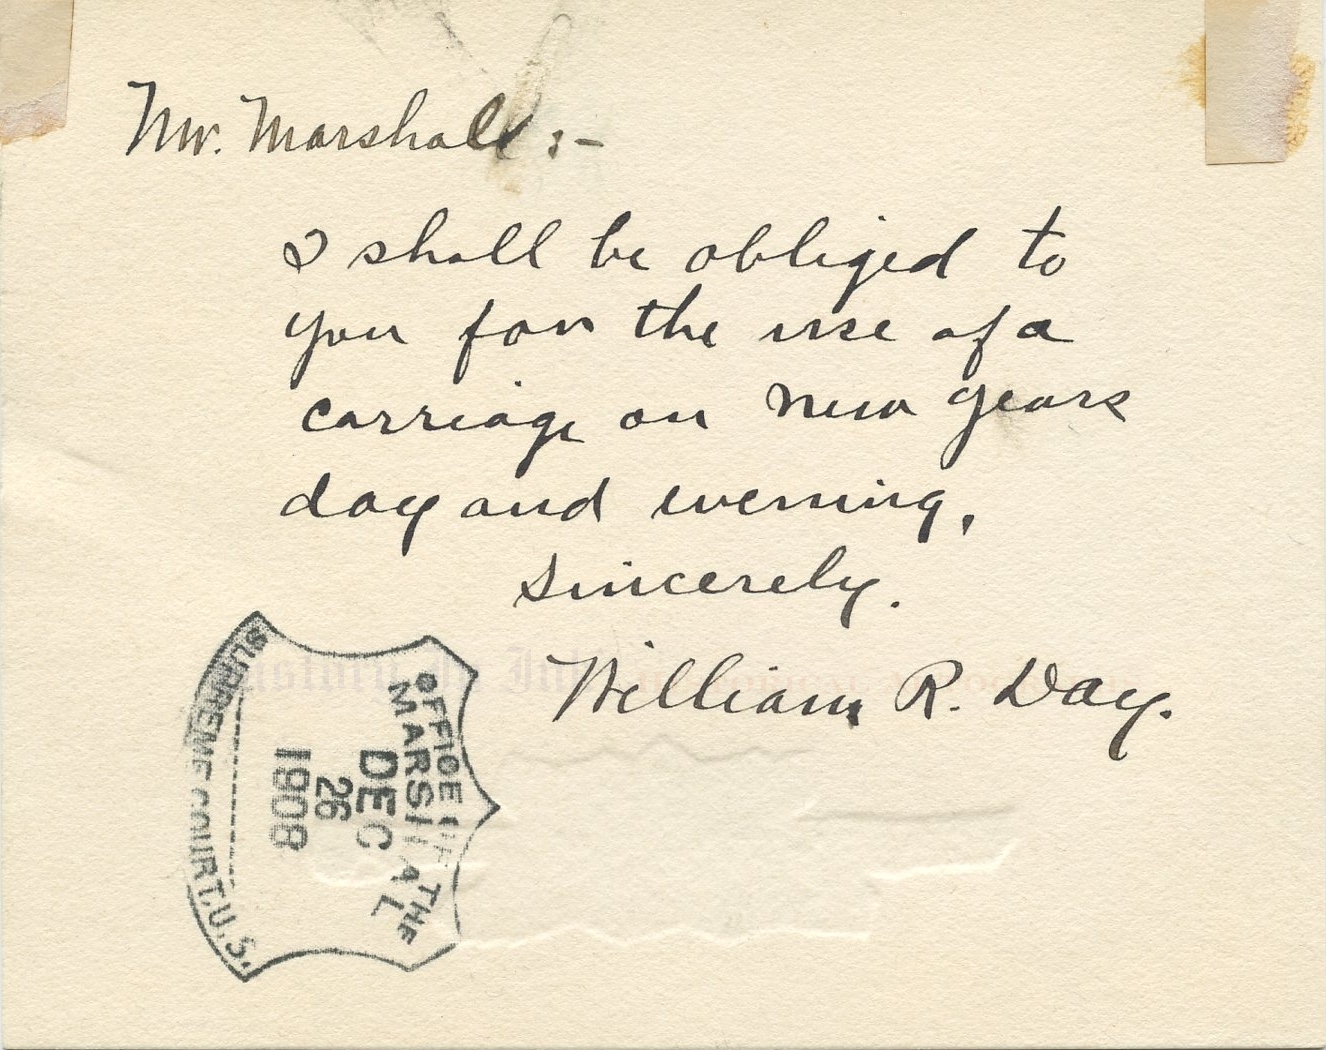 Mr. Marshall:-
I shall be obliged to
you for the use of a
carriage on New Years
day and evening,
Sincerely.
William R. Day.
OFFICE OF THE
MARSHAL
DEC
26
1908
SUPREME COURT, U.S.